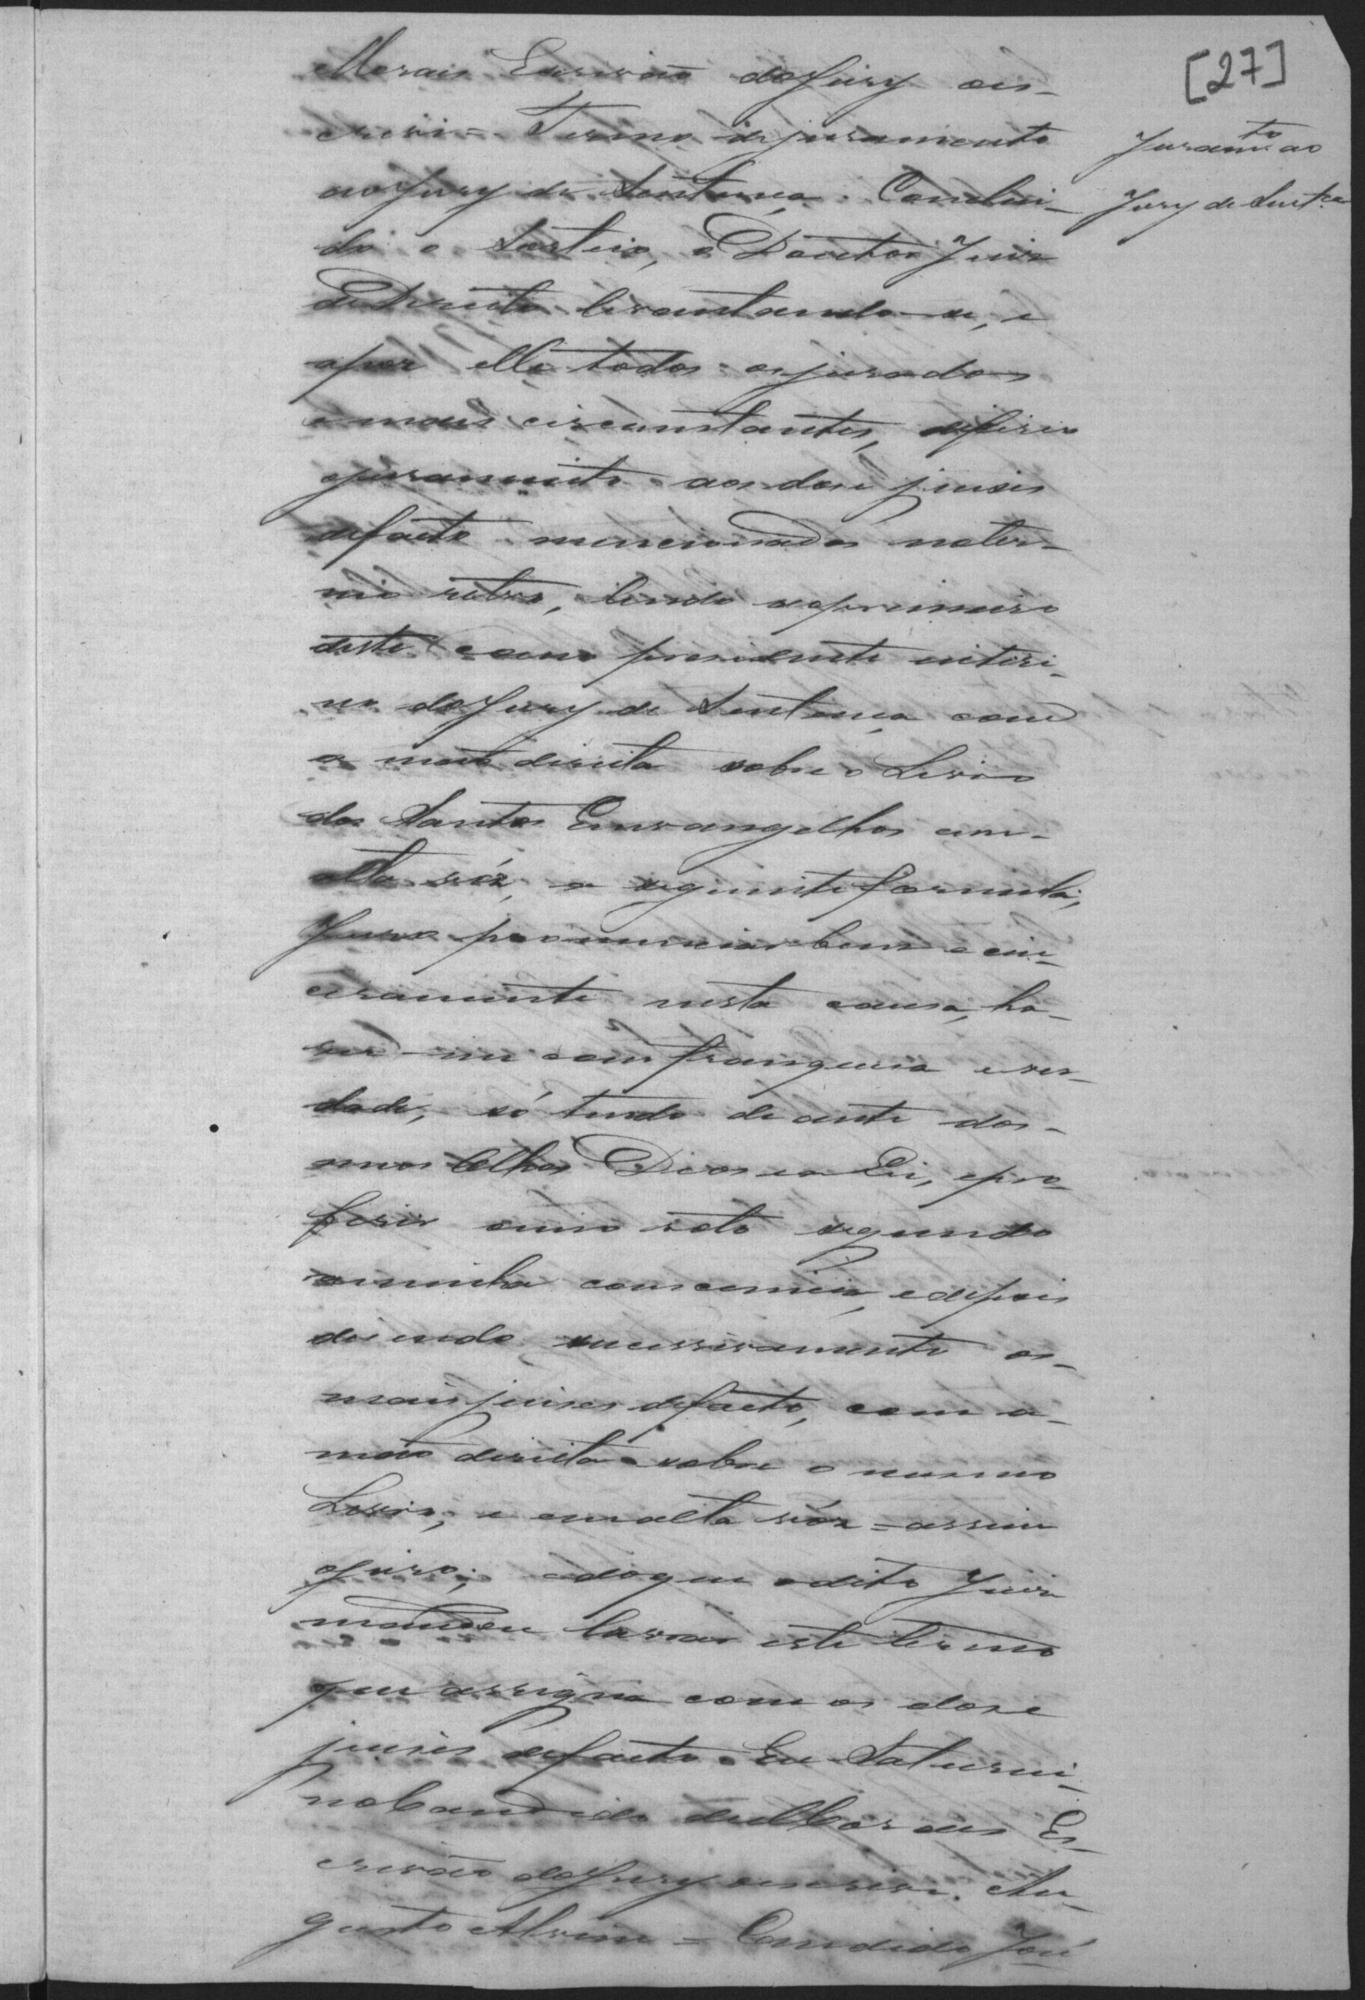 [27]
Juram.to ao
Jury de Sent.ça
Morais Escrivão do Jury es-
crevi = Termo de juramento
ao Jury de Sentença. Conclui-
do o sorteio, o Doutor Juiz
de Direito levantando-se, e
apoz elle todos os jurados
e mais circunstantes, deferio
juramento aos dose juises
de facto mencionados no ter-
mo retro, lendo o primeiro
deste como presidente interi-
no do Jury de Sentença com
a mão direita sobre o Livro
dos Santos Envangelhos em
alta vóz, a seguinte formula,
Juro pronunciar bem e cin-
ceramente nesta causa, ha-
ver-me com franquesa e ver-
dade, só tendo deante dos
meos olhos Deos e a Lei, e pro-
ferir o meo voto segundo
a minha consciencia, e depois
disendo sucessivamente os
mais juises de facto, com a
mão direita sobre o mesmo
Livro, e em alta vóz = assim
o juro; e do que o dito Juiz
mandou lavrar este termo
que assigna com os dose
juises de facto. Eu Saturni-
no Candido de Moraes Es-
crivão do Jury escrevi. Au-
gusto Alvim = Candido José